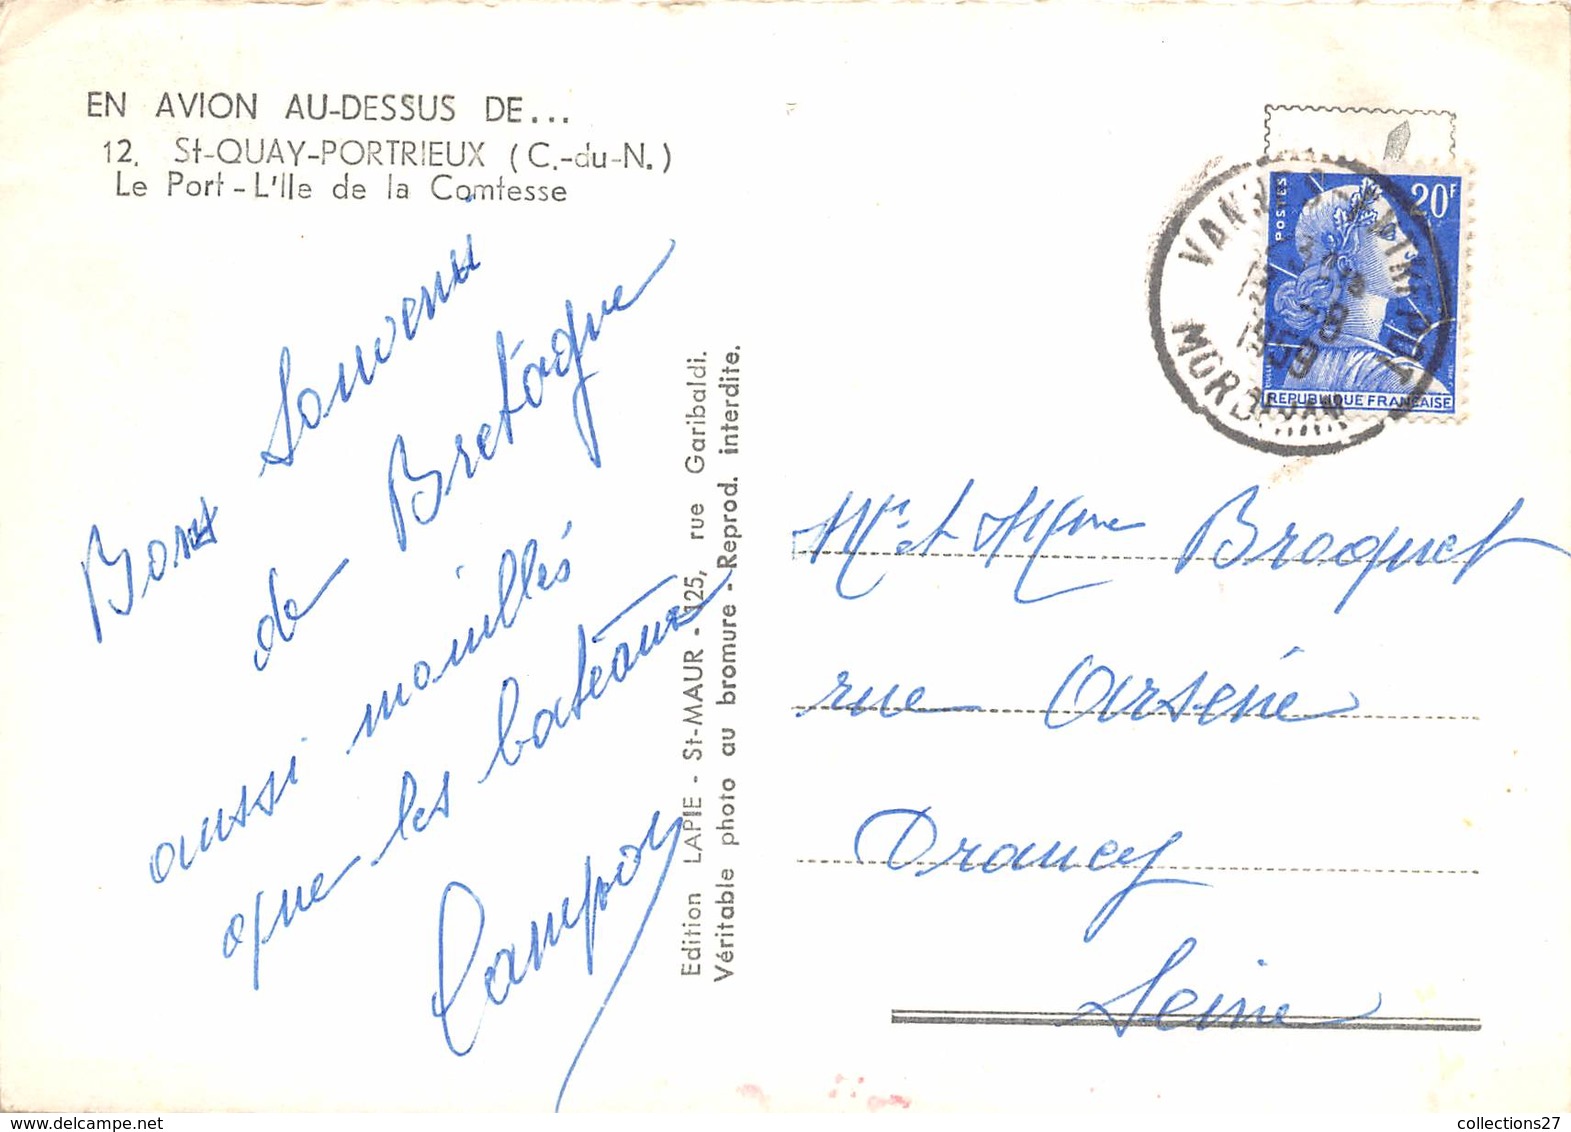 EN AVION AU-DESSUS DE...
12. St-QUAY-PORTRIEUX (C.-du-N.)
Le Port - L'Ile de la Comtesse
Bons Souvenir
de Bretagne
aussi mouillés
que les bateaux
Campoy
Edition LAPIE - St-MAUR - 125, rue Garibaldi.
Véritable photo au bromure - Reprod. interdite.
POSTES
20F
REPUBLIQUE FRANÇAISE
VANNES
-8
1959
MORBIHAN
Mr et Mme Broquet
rue Arsène
Drancy
Seine
collections27